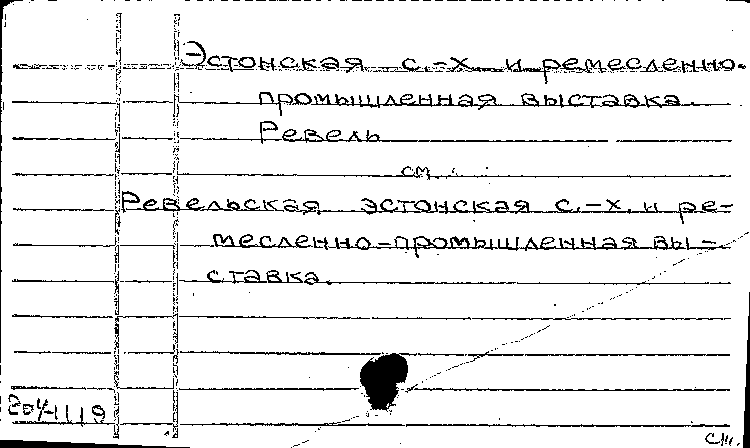 Эстонская с.-х. и ремесленно-
промышленная выставка.
Ревель
см.
Ревельская эстонская с.-х. и ре-
месленно-промышленная вы-
ставка.
204-1119